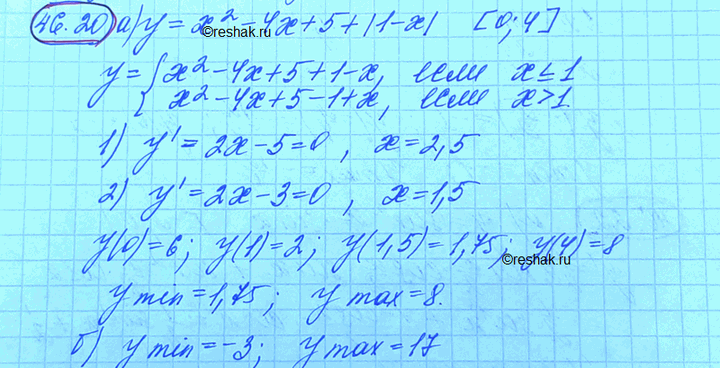 46.20) а) y = x² - 4x + 5 + |1 - x| [0; 4]
©reshak.ru
y = { x² - 4x + 5 + 1 - x, если x ≤ 1
x² - 4x + 5 - 1 + x, если x > 1
1) y' = 2x - 5 = 0, x = 2,5
2) y' = 2x - 3 = 0, x = 1,5
y(0) = 6; y(1) = 2; y(1,5) = 1,75; y(4) = 8
©reshak.ru
y min = 1,75; y max = 8.
б) y min = -3; y max = 17